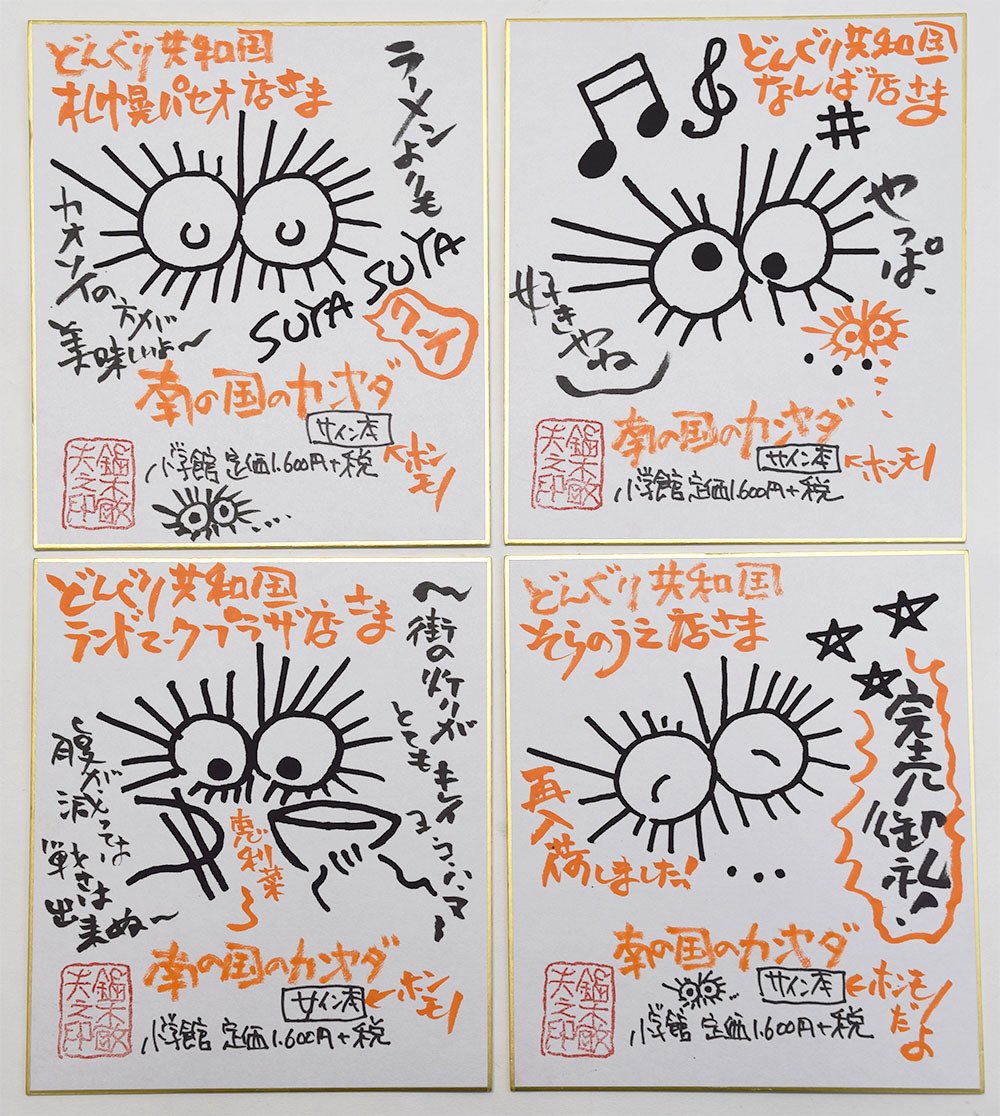 どんぐり共和国
札幌パセオ店さま
ラーメンよりも
カオソイの
方が
美味しいよ〜
SUYA SUYA
クーイ
南の国のカンヤダ
サイン本
小学館 定価1.600円+税
←ホンモノ
鈴木敏夫之印
どんぐり共和国
なんば店さま
やっぱ、
好きやね
南の国のカンヤダ
サイン本
←ホンモノ
小学館 定価1.600円+税
鈴木敏夫之印
どんぐり共和国
ランドマークプラザ店さま
〜街の灯りが
とてもキレイ
ヨコハマ〜
腹が減っては
戦さは
出来ぬ〜
恵利菜
南の国のカンヤダ
サイン本
←ホンモノ
小学館 定価1.600円+税
鈴木敏夫之印
どんぐり共和国
そらのうえ店さま
完売
御礼!
再入荷しました!
南の国のカンヤダ
サイン本
←ホンモノだよ
小学館 定価1.600円+税
鈴木敏夫之印